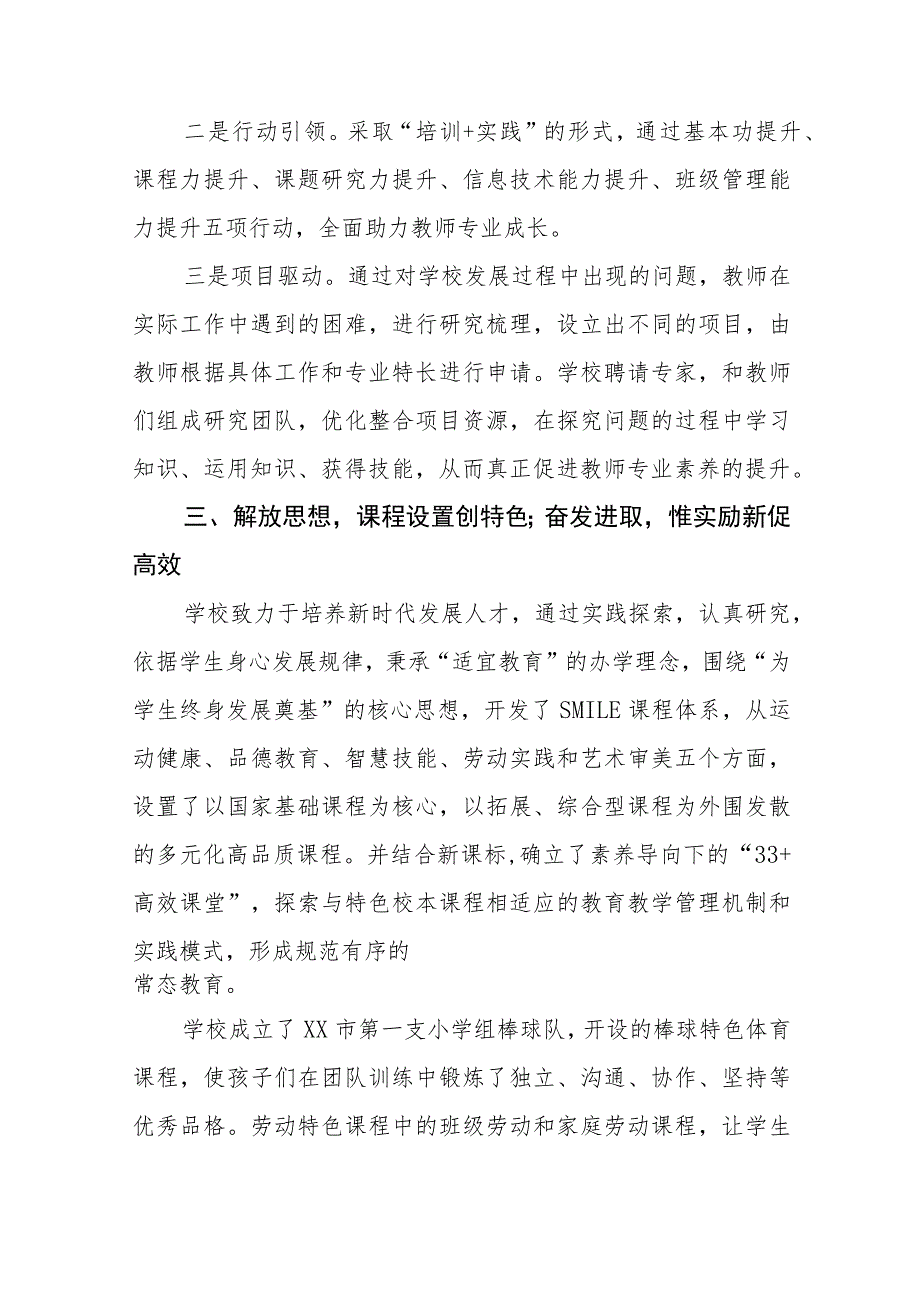 二是行动引领。采取“培训+实践”的形式，通过基本功提升、
课程力提升、课题研究力提升、信息技术能力提升、班级管理能
力提升五项行动，全面助力教师专业成长。
三是项目驱动。通过对学校发展过程中出现的问题，教师在
实际工作中遇到的困难，进行研究梳理，设立出不同的项目，由
教师根据具体工作和专业特长进行申请。学校聘请专家，和教师
们组成研究团队，优化整合项目资源，在探究问题的过程中学习
知识、运用知识、获得技能，从而真正促进教师专业素养的提升。
三、解放思想，课程设置创特色；奋发进取，惟实励新促
高效
学校致力于培养新时代发展人才，通过实践探索，认真研究，
依据学生身心发展规律，秉承“适宜教育”的办学理念，围绕“为
学生终身发展奠基”的核心思想，开发了 SMILE 课程体系，从运
动健康、品德教育、智慧技能、劳动实践和艺术审美五个方面，
设置了以国家基础课程为核心，以拓展、综合型课程为外围发散
的多元化高品质课程。并结合新课标,确立了素养导向下的“33+
高效课堂”，探索与特色校本课程相适应的教育教学管理机制和
实践模式，形成规范有序的
常态教育。
学校成立了 XX 市第一支小学组棒球队，开设的棒球特色体育
课程，使孩子们在团队训练中锻炼了独立、沟通、协作、坚持等
优秀品格。劳动特色课程中的班级劳动和家庭劳动课程，让学生